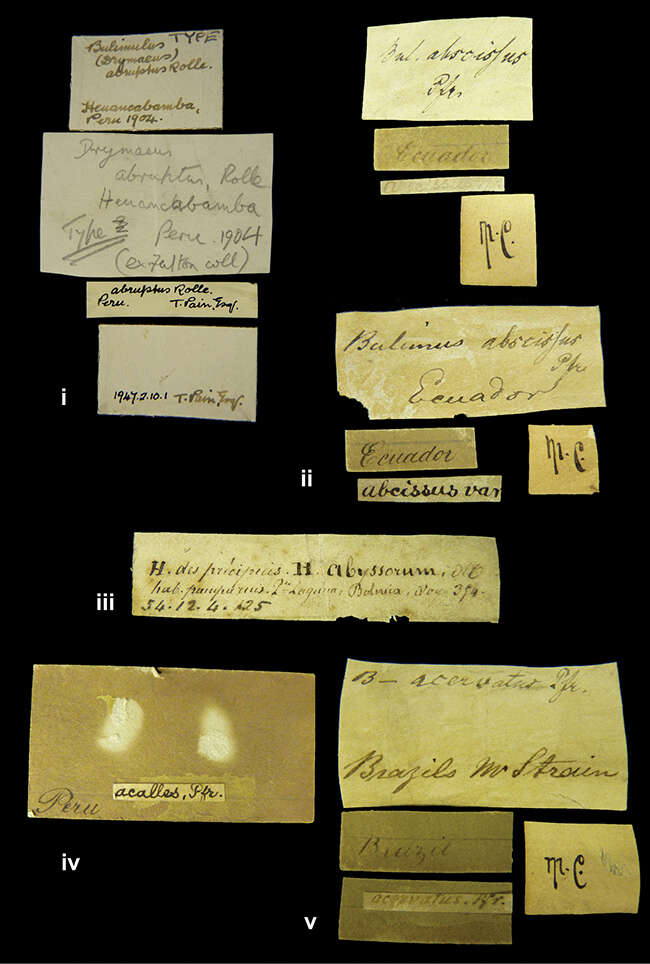 Bulimulus TYPE
(Drymaeus)
abruptus Rolle.
Huancabamba,
Peru 1904.
Drymaeus
abruptus, Rolle
Huancabamba
Type Peru. 1904
(ex Fulton coll)
abruptus Rolle.
Peru. T. Pain, Esq.
1947.2.10.1 T. Pain, Esq.
i
Bul. abscissus
Pfr.
Ecuador
M.C.
Bulimus abscissus
Pfr
Ecuador
Ecuador
abcissus var
M.C.
ii
H. des précipices. H. Abyssorum,
hab. Laguna, Bolivia,
54.12.4.125
iii
acalles, Pfr.
Peru
iv
B— acervatus Pfr.
Brazils Mr Strain
Brazil
acervatus. Pfr.
M.C.
v